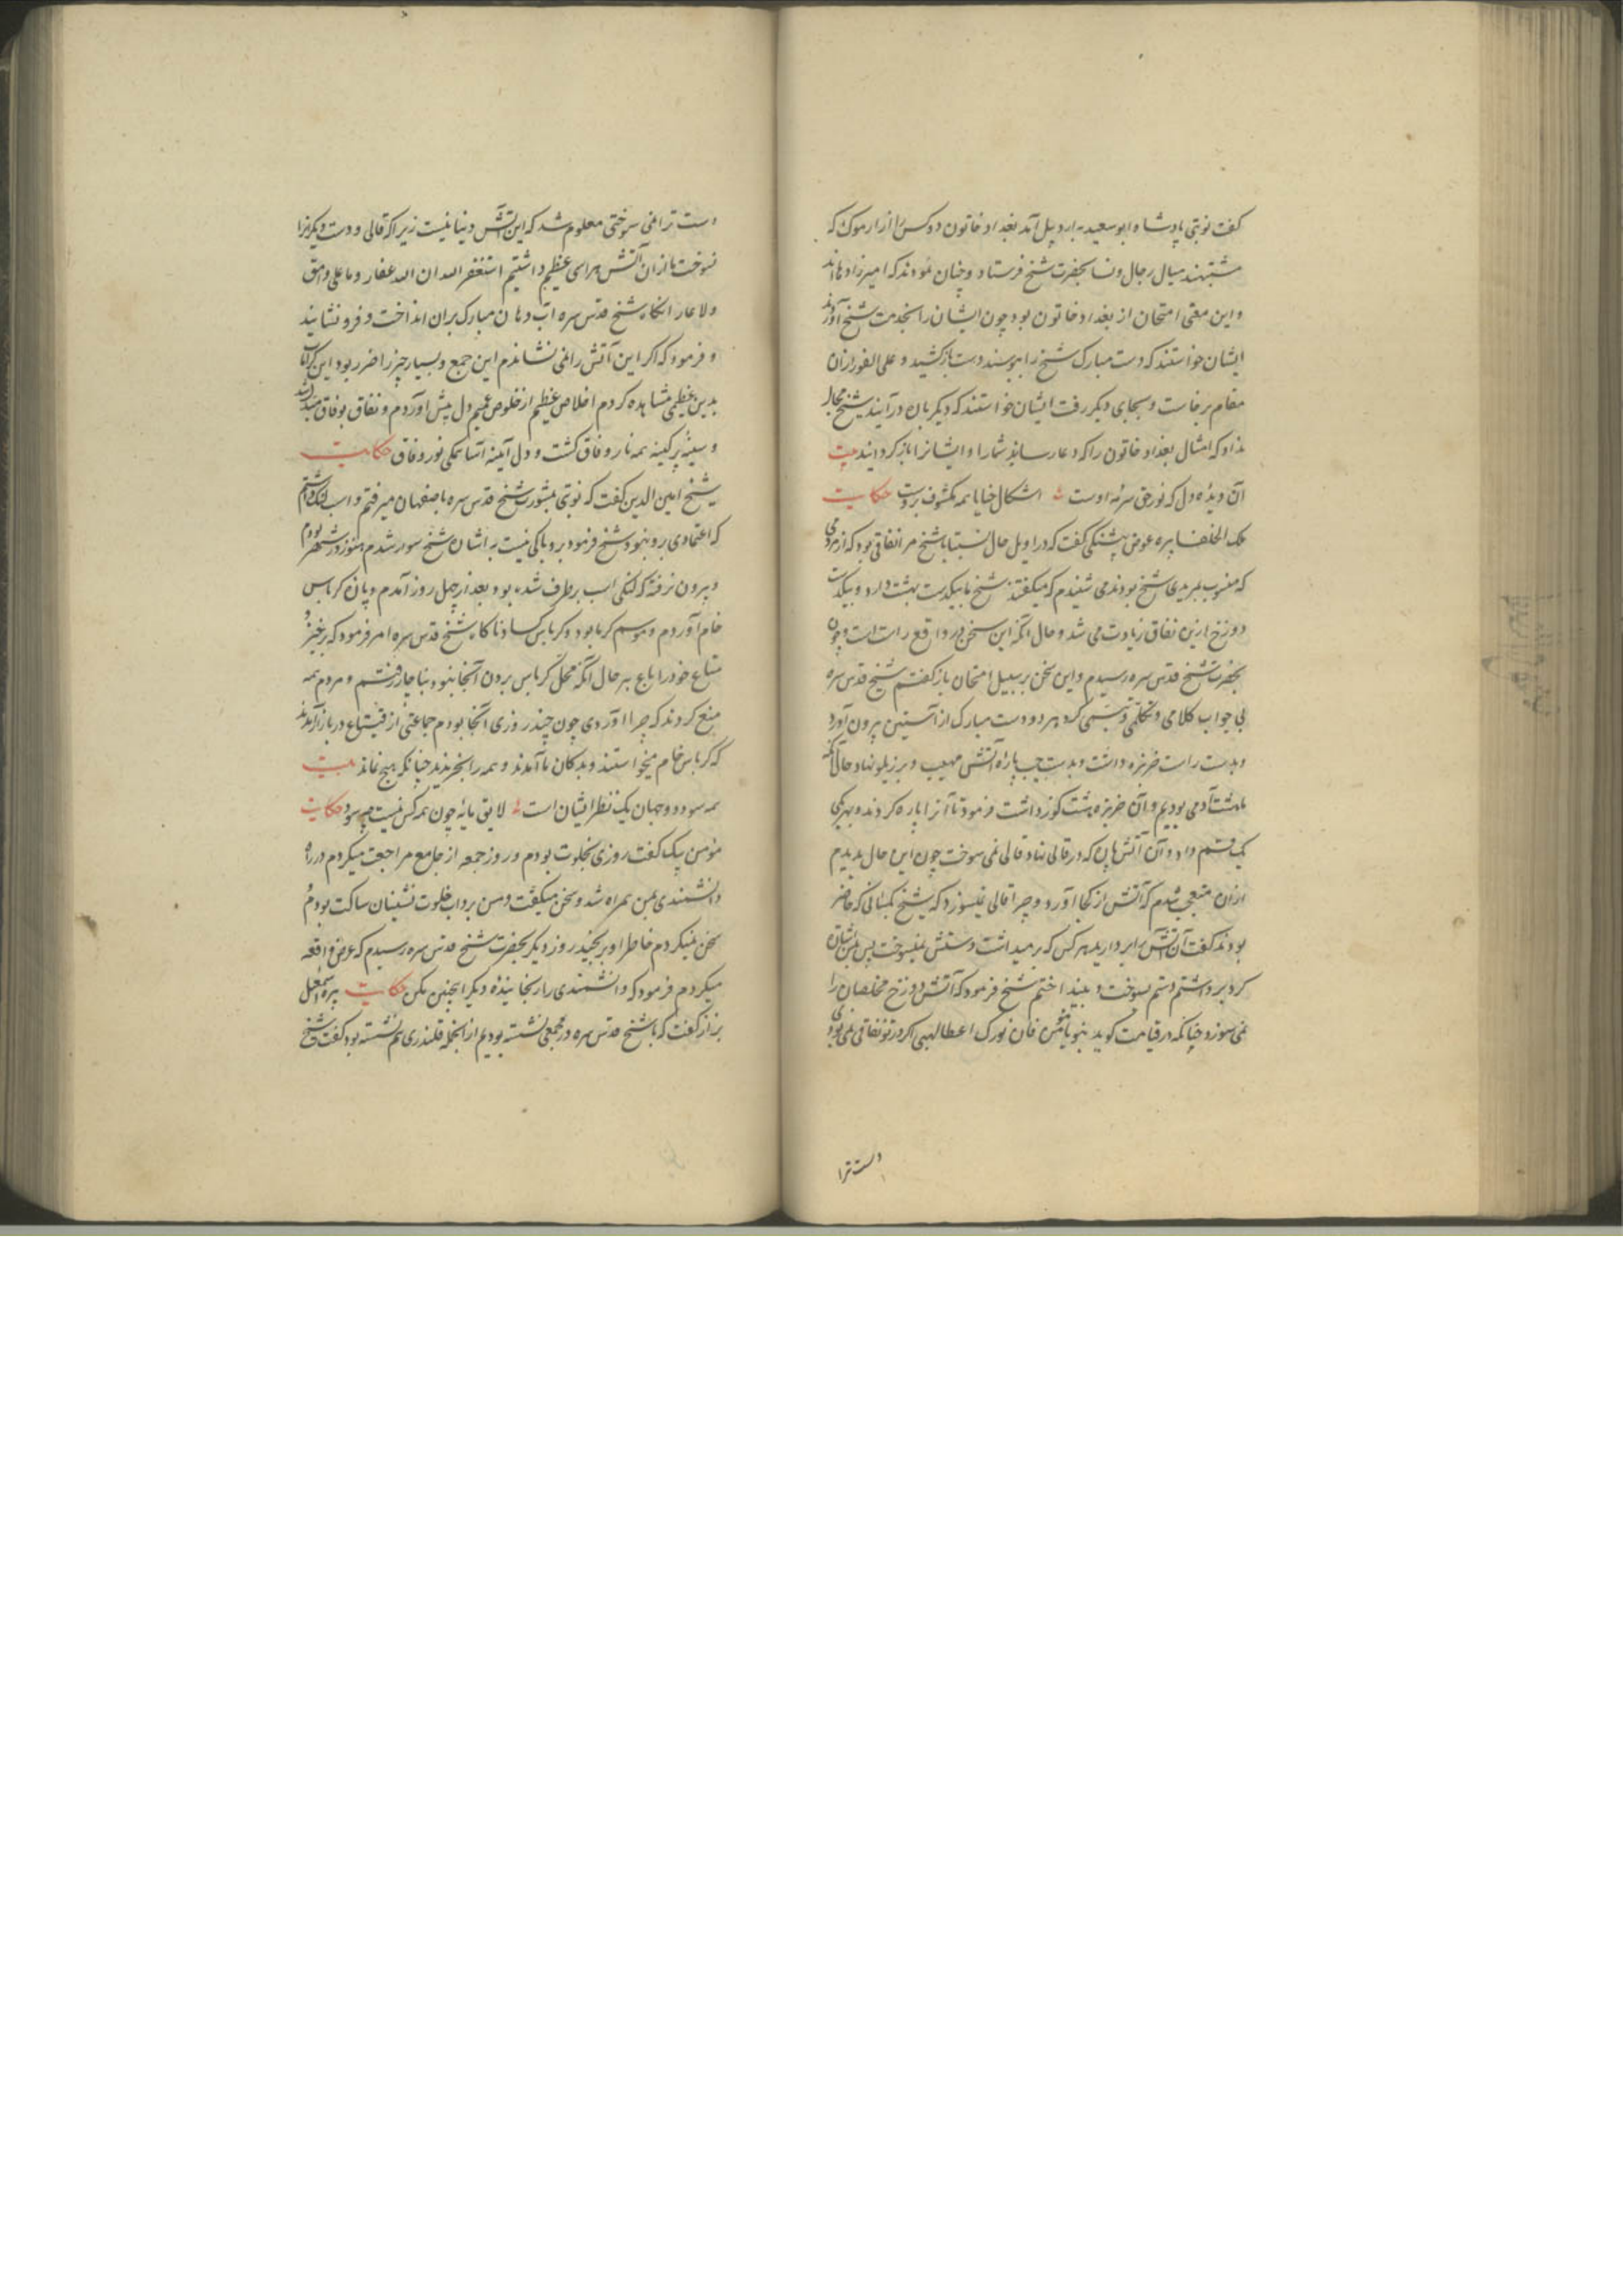 کفت نوبتی پادشاه ابوسعید به اردبیل آمد بغداد خاتون دو کس را از ارموک که
مشتبهند میان رجال و نسا بحضرت شیخ فرستاد و چنان نمودند که امیرزاده‌ها اند
و این معنی امتحان از بغداد خاتون بود چون ایشان را بخدمت شیخ آوردند
ایشان خواستند که دست مبارک شیخ را ببوسند دست باز کشید و علی الفور از آن
مقام برخاست و بجای دیگر رفت ایشان خواستند که دیگر باره در آیند شیخ مجال
نداد که امثال بغداد خاتون را که دعا رسانید شما را و ایشانرا باز گردانید بیت
آن دیدۀ دل که نور حق سرمه اوست اشکال خفایا همه مکشوف بروست حکایت
ملک الخلفا پیره عوض پشتکی کفت که در اوایل حال نسبت با شیخ مرا نفاقی بود که از مردمی
که منسوب بمریدی شیخ بودند می شنیدم که میکفتند شیخ ما بیکدست بهشت دارد و بیکدست
دوزخ ازین نفاق زیادت می شد و حال آنکه این سخن در واقع راست است و چون
بحضرت شیخ قدس سره رسیدم و این سخن بر سبیل امتحان باز کفتم شیخ قدس سره
بی جواب کلامی و تکلمی تبسمی کرد هر دو دست مبارک از آستین بیرون آورد
و بدست راست خربزه داشت و بدست چپ پاره آتش مهیب و بر زیلو نهاد حال آنکه
ما هشت آدمی بودیم و آن خربزه هشت کوز داشت فرمود تا آنرا پاره کردند و بهر یکی
یک قسم داد و آن آتش هایل که در قالی نهاد قالی نمی سوخت چون این حال بدیدم
از آن متعجب شدم که آتش از کجا آورد و چرا قالی نمیسوزد که شیخ بکسانی که حاضر
بودند کفت آن آتش را بردارید هر کس که بر میداشت دستش نمیسوخت پس بمن اشارت
کرد برداشتم دستم بسوخت و بینداختم شیخ فرمود که آتش دوزخ مخلصان را
نمی سوزد چنانکه در قیامت کوید جز یا مؤمن فان نورک اطفا لهبی اکر در تو نفاقی نمی بودی
دست ترا
دست ترا نمی سوختی معلوم شد که این آتش دنیا نیست زیرا که قالی و دست دیگرانرا
نسوخت ما از آن آتش هراسی عظیم داشتیم استغفر الله ان الله غفار و ما علی وامق
ولا عار آنکاه شیخ قدس سره آب دهان مبارک بران انداخت و فرو نشانید
و فرمود که اکر این آتش را نمی نشاندم این جمع و بسیار چیز را ضرر بود این کرامات
بدین عظیمی مشاهده کردم اخلاص عظیم از خلوص صمیم دل پیش آوردم و نفاق بوفاق مبدل شد
و سینه پر کینه همه نار وفاق کشت و دل آینه آسا همکی نور وفاق حکایت
شیخ امین الدین کفت که نوبتی بمشورت شیخ قدس سره باصفهان میرفتم و اسب لنک داشتم
که اعتمادی برو نبود شیخ فرمود برو باکی نیست به اشارت شیخ سوار شدم هنوز در شهر بودم
و بیرون نرفته که لنکی اسب برطرف شده بود بعد از چهل روز آمدم و پاره کرباس
خام آوردم و موسم کرما بود و کرباس کساد ناکاه شیخ قدس سره امر فرمود که برخیز و
متاع خود را بباع بهر حال آنکه محل کرباس بردن آنجا نبود بناچار رفتم و مردم همه
منع کردند که چرا آوردی چون چند روزی آنجا بودم جماعتی از قپچاق در بازار آمدند
که کرباس خام میخواستند و بدکان ما آمدند و همه را بخریدند چنانکه هیچ نماند بیت
همه سود دو جهان یک نظر ایشان است لایق مایه چون همه کس نیست چه سود حکایت
مؤمن بیک کفت روزی بخلوت بودم و روز جمعه از جامع مراجعت میکردم در راه
دانشمندی بمن همراه شد و سخن میکفت و من بر داب خلوت نشینان ساکت بودم و
سخن نمیکردم خاطر او برنجید روز دیگر بحضرت شیخ قدس سره رسیدم که عرض واقعه
میکردم فرمود که دانشمندی را رنجانیده دیگر اینچنین مکن حکایت پیره اسمعیل
بزاز کفت که با شیخ قدس سره در مجمعی نشسته بودیم از آنجمله قلندری هم نشسته بود کفت شیخ